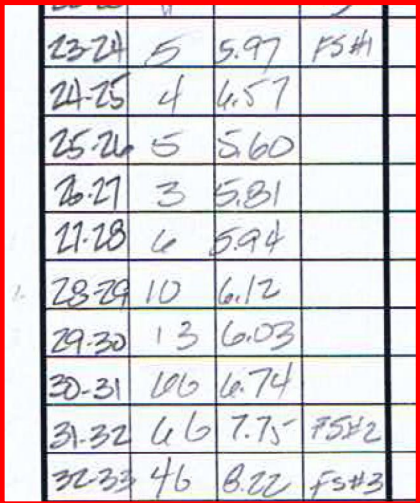 23-24 5 5.97 FS#1
24-25 4 6.57
25-26 5 5.60
26-27 3 5.81
27-28 6 5.94
28-29 10 6.12
29-30 13 6.03
30-31 6.74
31-32 66 7.75 FS#2
32-33 46 8.22 FS#3